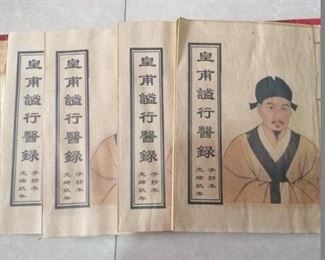 皇甫謐行醫錄
手抄本
光緒玖年
皇甫謐行醫錄
手抄本
光緒玖年
皇甫謐行醫錄
手抄本
光緒玖年
皇甫謐行醫錄
手抄本
光緒玖年